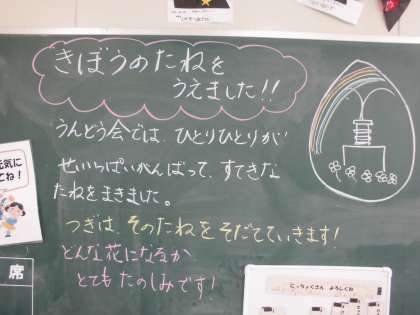 きぼうのたねを
うえました!!
うんどう会では、ひとりひとりが
せいいっぱいがんばって、すてきな
たねをまきました。
つぎは、そのたねをそだてていきます!
どんな花になるか
とてもたのしみです!
元気に
てね!
席
にっちょくさん よろしくね